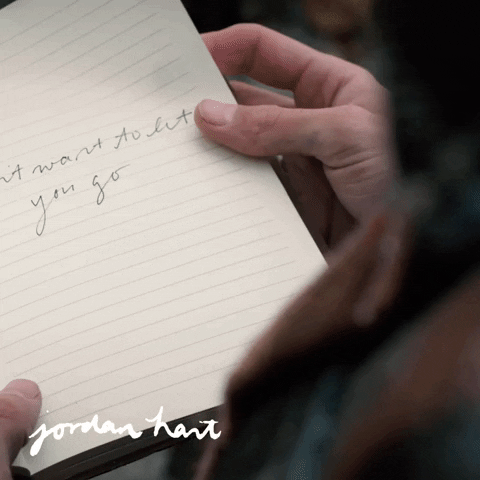 n't want to let
you go
jordan hart